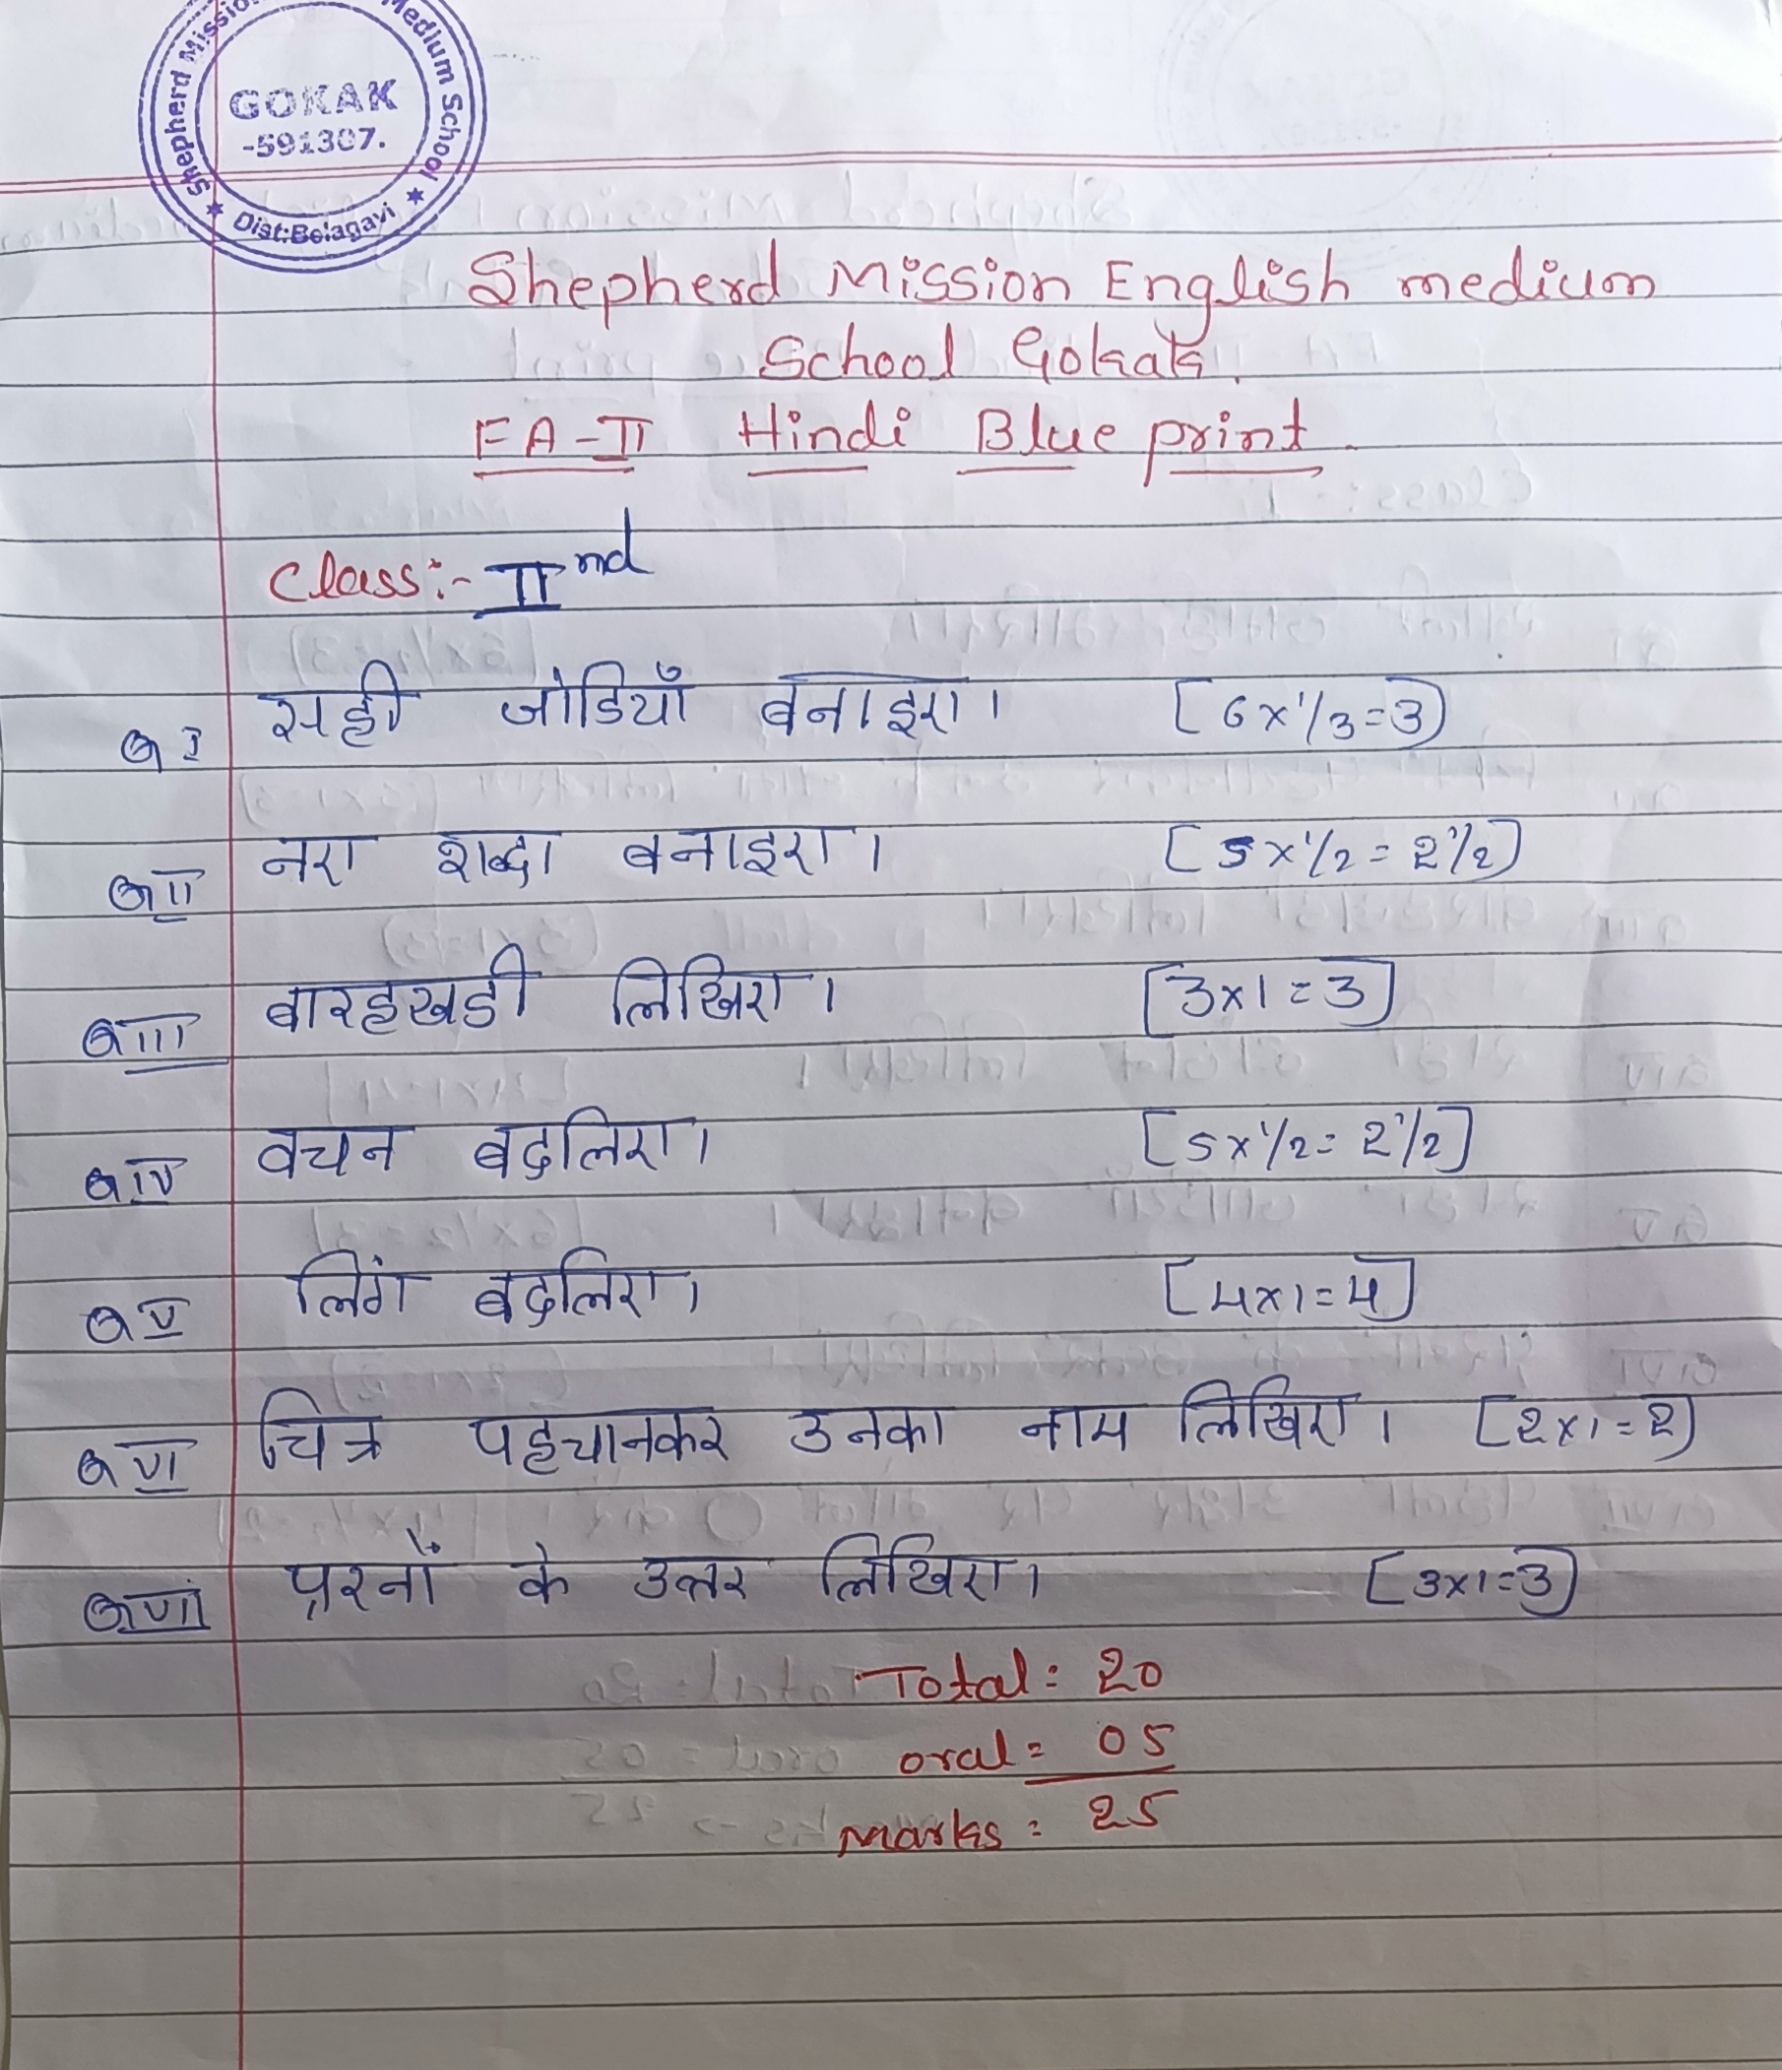 Shepherd Mission Medium School
GOKAK
-591307.
Dist:Belagavi
Shepherd Mission English medium
School Gokak.
FA-II Hindi Blue print.
Class:- IInd
Q I सही जोडियाँ बनाइए। [6x1/3=3]
Q II नए शब्दा बनाइए। [5x1/2=2 1/2]
Q III बारहखडी लिखिए। [3x1=3]
Q IV वचन बदलिए। [5x1/2=2 1/2]
Q V लिंग बदलिए। [4x1=4]
Q VI चित्र पहचानकर उनका नाम लिखिए। [2x1=2]
Q VII प्रश्नों के उत्तर लिखिए। [3x1=3]
Total: 20
oral= 05
marks: 25